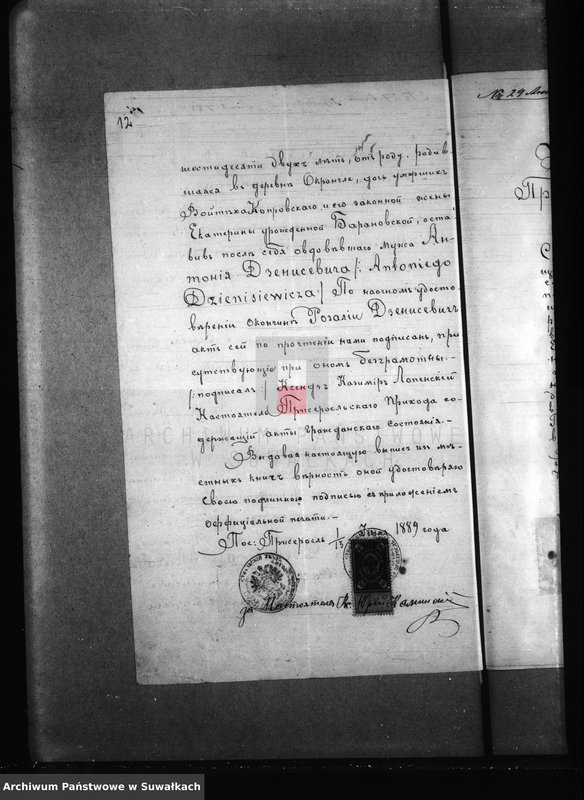 12
№ 29
шестидесяти двухъ лѣтъ, отъ роду, родив-
шаяся въ деревнѣ Окронгле, дочь умершихъ
Войтѣха Копровскаго, и его законной жены
Екатерины урожденной Барановской, оста
вивъ послѣ себя овдовѣвшаго мужа Ан-
тонія Дзенисевича /: Antoniego
Dzienisiewicza :/ По наочномъ удосто
вѣреніи о кончинѣ Розаліи Дзенисевичъ
актъ сей по прочтеніи нами подписанъ, при
сутствующіе при ономъ безграмотны.-
/: подписалъ :/ Ксендзъ Казиміръ Лопенскій
Настоятель Пржеросльскаго Прихода со-
держащій акты Гражданскаго Состоянія.-
Выдавая настоящую выпись изъ мѣ-
стныхъ книгъ вѣрность оной удостовѣряю
своею подписью съ приложеніемъ
оффиціальной печати.-
Пос: Пржеросль 1/13 1889 года
за Настоятеля Кс.
ARCHIWUM PAŃSTWOWE
Archiwum Państwowe w Suwałkach